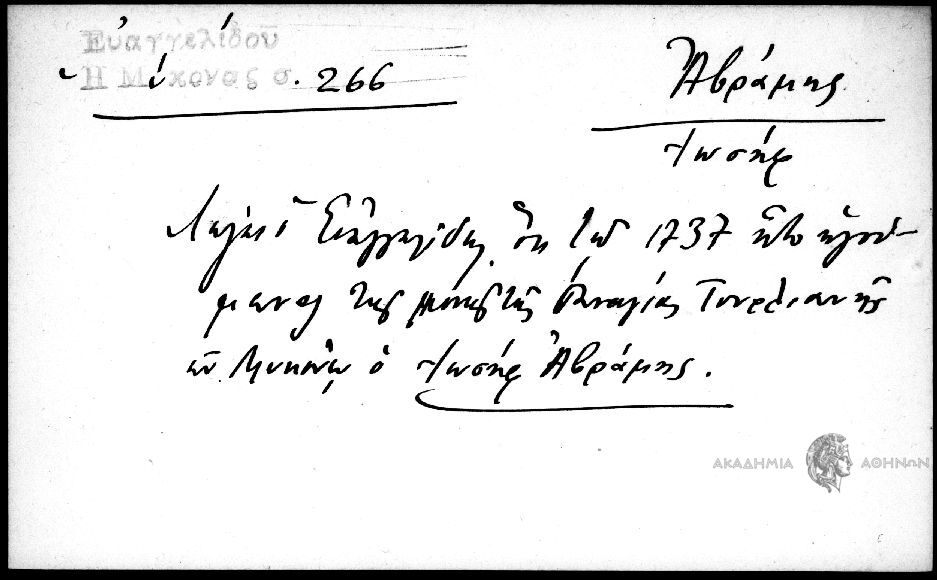 Εὐαγγελίδου
Ἡ Μύκονος σ. 266
Ἀβράμης
Ἰωσήφ
Λέγει ὁ Εὐαγγελίδης ὅτι τῷ 1737 ἦτο ἡγού-
μενος τῆς μονῆς τῆς Παναγίας Τουρλιανῆς
ἐν Μυκόνῳ ὁ Ἰωσήφ Ἀβράμης.
ΑΚΑΔΗΜΙΑ ΑΘΗΝΩΝ